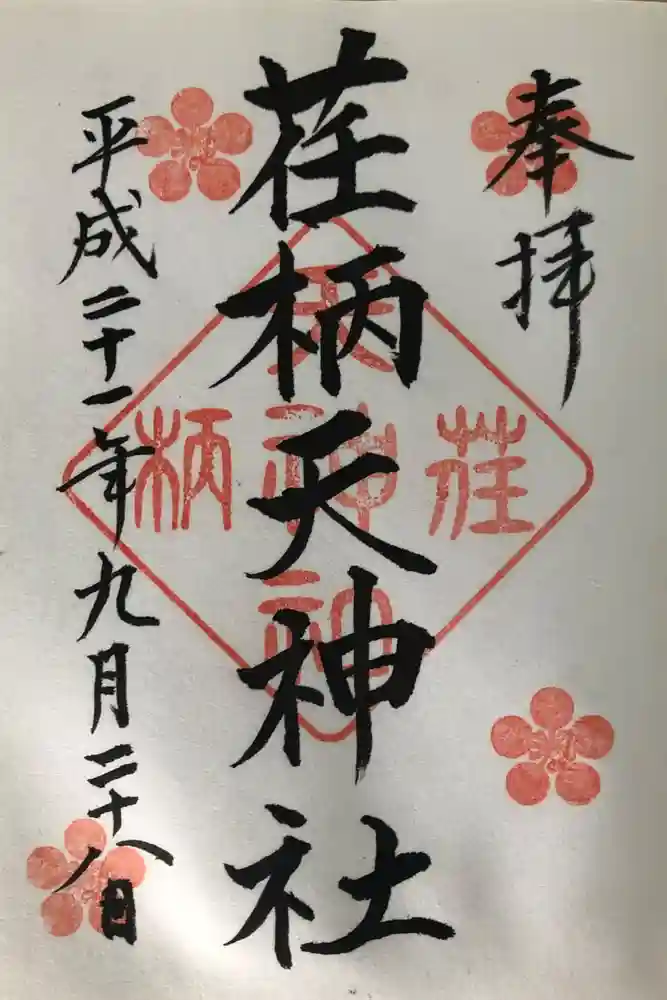 奉拝
荏柄天神社
平成二十一年九月二十八日
荏
天
神
社
柄